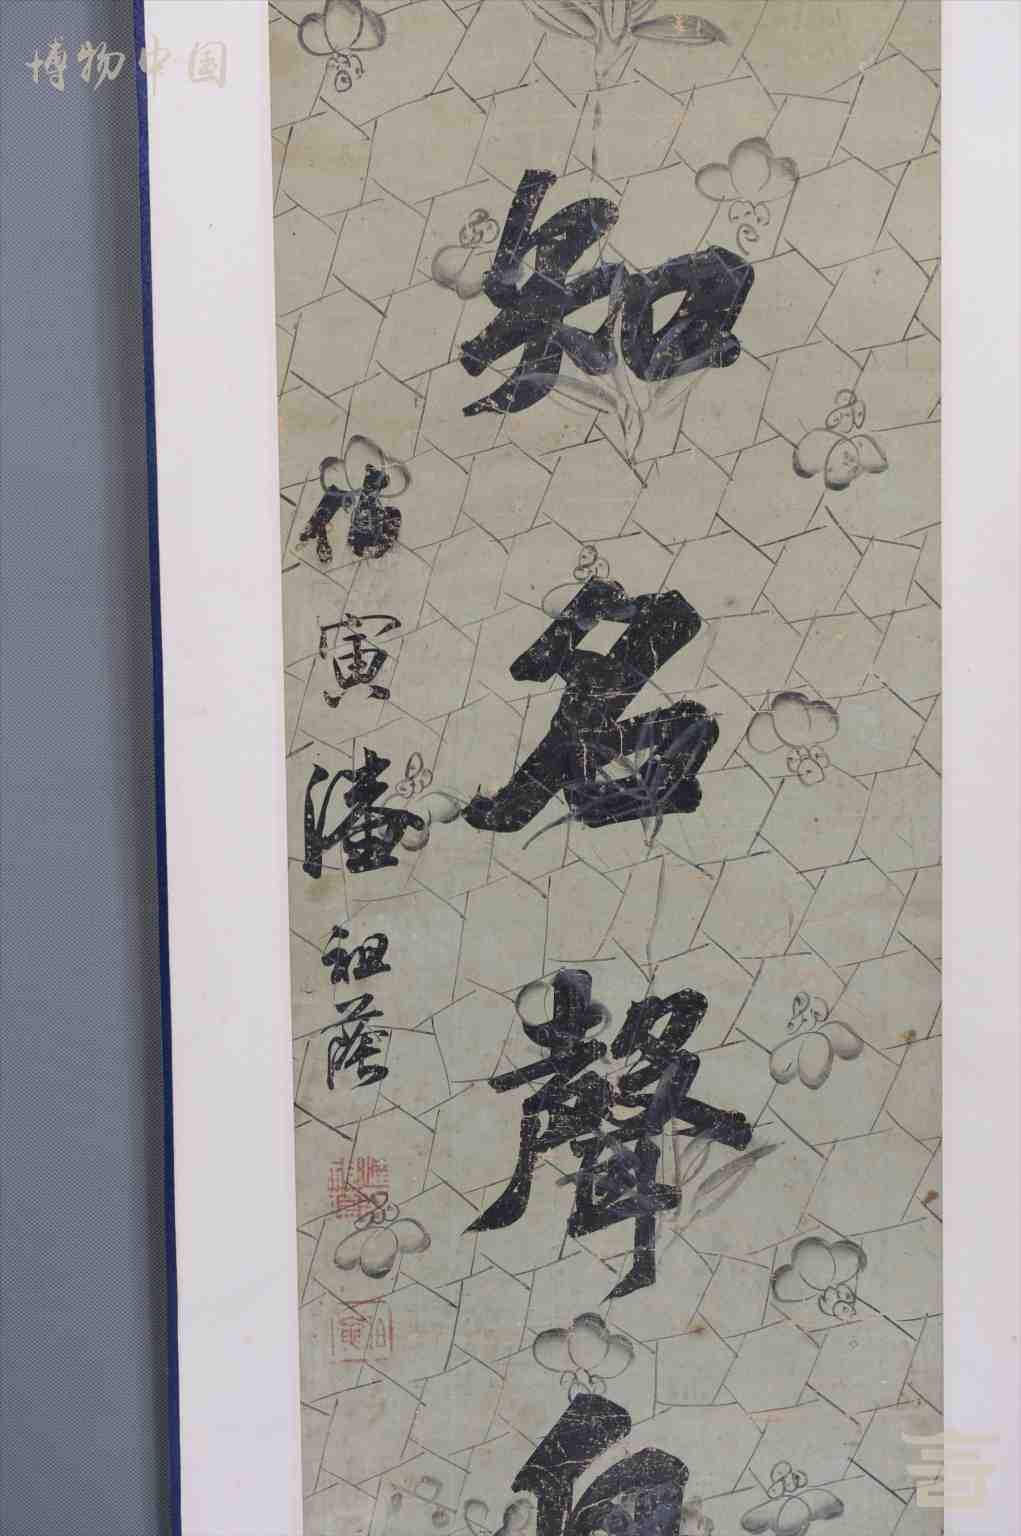 知名聲自
伯寅潘祖蔭
博物中国